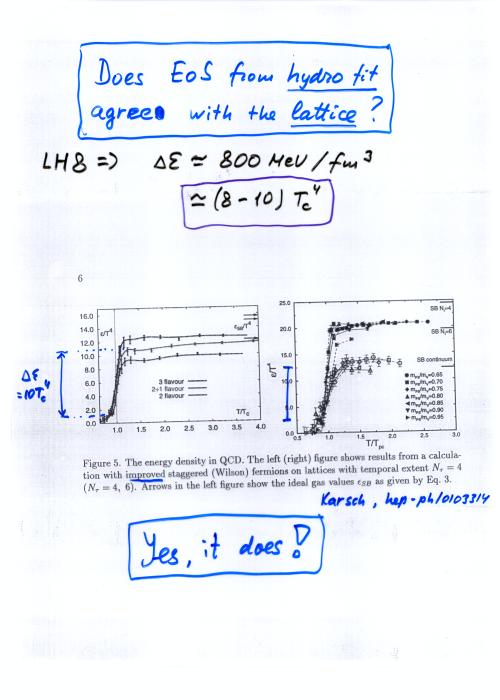 Does EoS from hydro fit
agree with the lattice?
LH8 => Δε ≃ 800 MeV/fm³
≃ (8-10) Tc⁴
6
16.0
14.0
12.0
10.0
8.0
6.0
4.0
2.0
0.0
ε/T⁴
εSB/T⁴
3 flavour
2+1 flavour
2 flavour
T/Tc
1.0 1.5 2.0 2.5 3.0 3.5 4.0
Δε
=10Tc⁴
25.0
20.0
15.0
10.0
5.0
0.0
ε/T⁴
SB Nτ=4
SB Nτ=6
SB continuum
mPS/mV=0.65
mPS/mV=0.70
mPS/mV=0.75
mPS/mV=0.80
mPS/mV=0.85
mPS/mV=0.90
mPS/mV=0.95
0.5 1.0 1.5 2.0 2.5 3.0
T/Tpc
Figure 5. The energy density in QCD. The left (right) figure shows results from a calcula-
tion with improved staggered (Wilson) fermions on lattices with temporal extent Nτ = 4
(Nτ = 4, 6). Arrows in the left figure show the ideal gas values εSB as given by Eq. 3.
Karsch, hep-ph/0103314
Yes, it does!